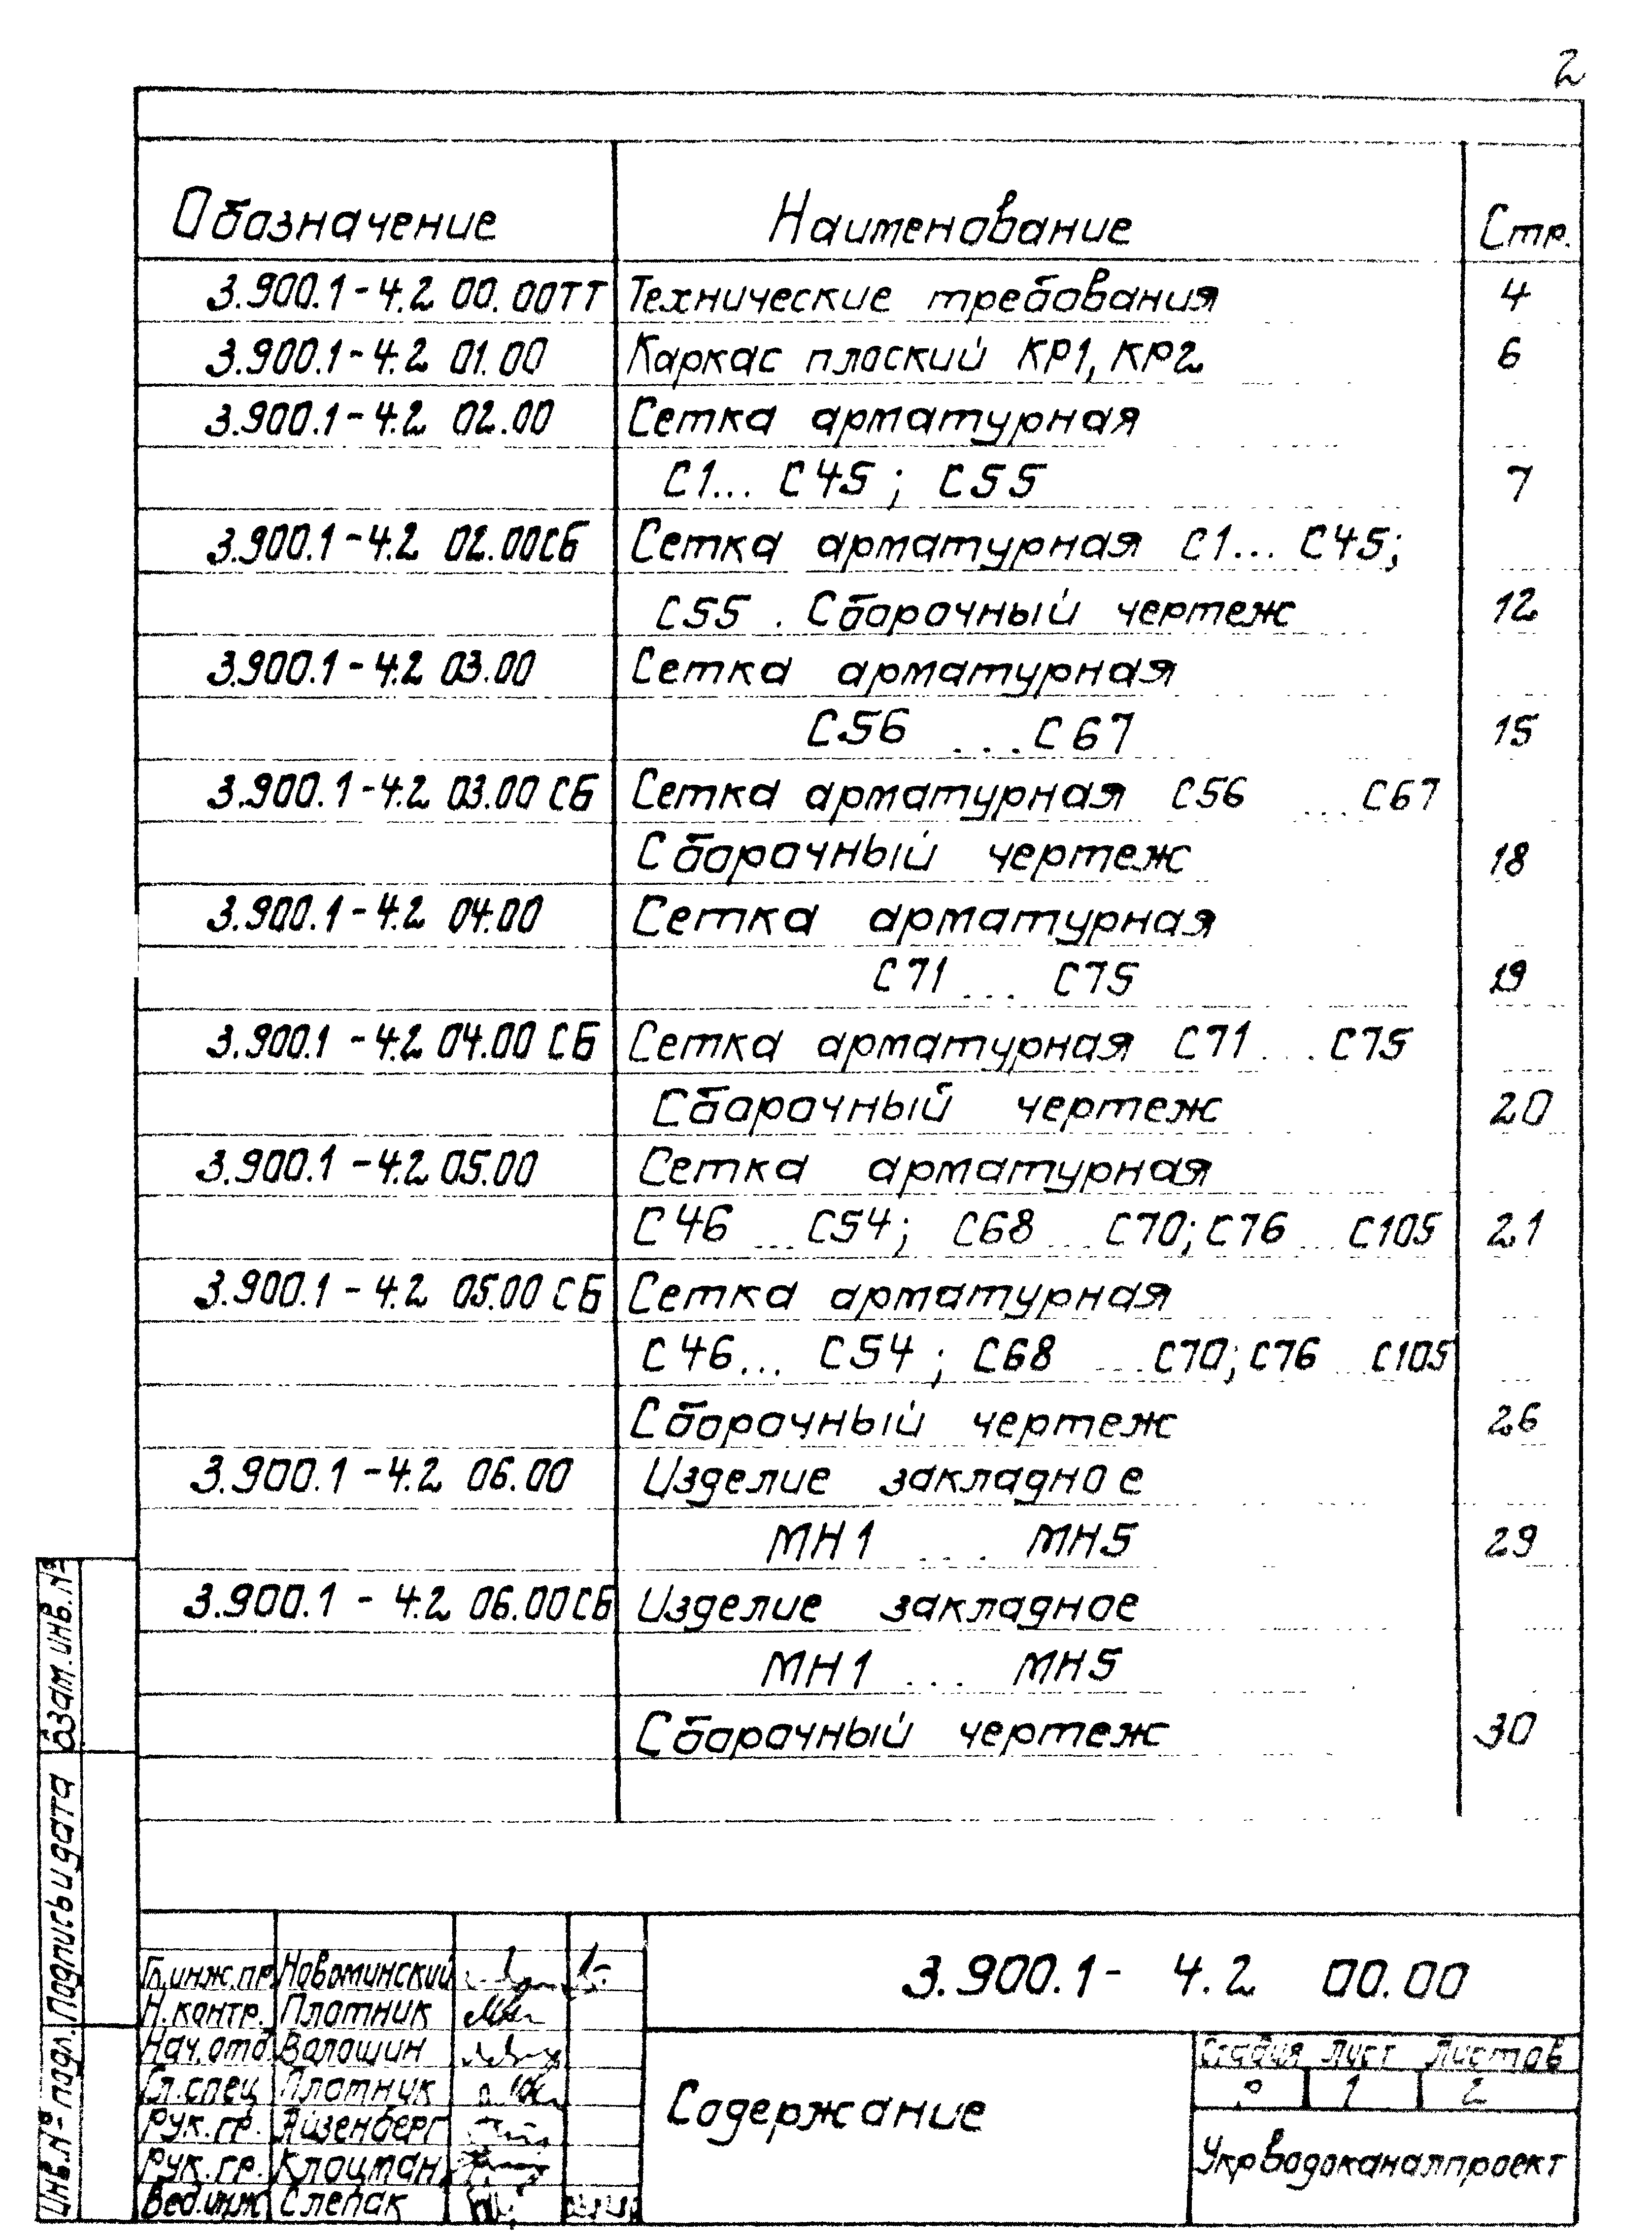 2
Обозначение Наименование Стр.
3.900.1-4.2 00.00ТТ Технические требования 4
3.900.1-4.2 01.00 Каркас плоский КР1, КР2 6
3.900.1-4.2 02.00 Сетка арматурная
С1... С45; С55 7
3.900.1-4.2 02.00СБ Сетка арматурная С1... С45;
С55. Сборочный чертеж 12
3.900.1-4.2 03.00 Сетка арматурная
С56 ...С67 15
3.900.1-4.2 03.00 СБ Сетка арматурная С56 ...С67
Сборочный чертеж 18
3.900.1-4.2 04.00 Сетка арматурная
С71 ... С75 19
3.900.1-4.2 04.00 СБ Сетка арматурная С71 ... С75
Сборочный чертеж 20
3.900.1-4.2 05.00 Сетка арматурная
С46 ...С54; С68 ...С70; С76 ...С105 21
3.900.1-4.2 05.00 СБ Сетка арматурная
С46... С54; С68 ...С70; С76 ...С105
Сборочный чертеж 26
3.900.1-4.2 06.00 Изделие закладное
МН1 .... МН5 29
3.900.1-4.2 06.00СБ Изделие закладное
МН1 ... МН5
Сборочный чертеж 30
Взам.инв.№
Подпись и дата
Инв.№ подл.
Гл.инж.пр. Новоминский
Н.контр. Плотник
Нач.отд. Волошин
Гл.спец Плотник
Рук.гр. Айзенберг
Рук.гр. Клоцман
Вед.инж Слепак
3.900.1- 4.2 00.00
Содержание
Стадия Лист Листов
Р 1 2
Укрводоканалпроект